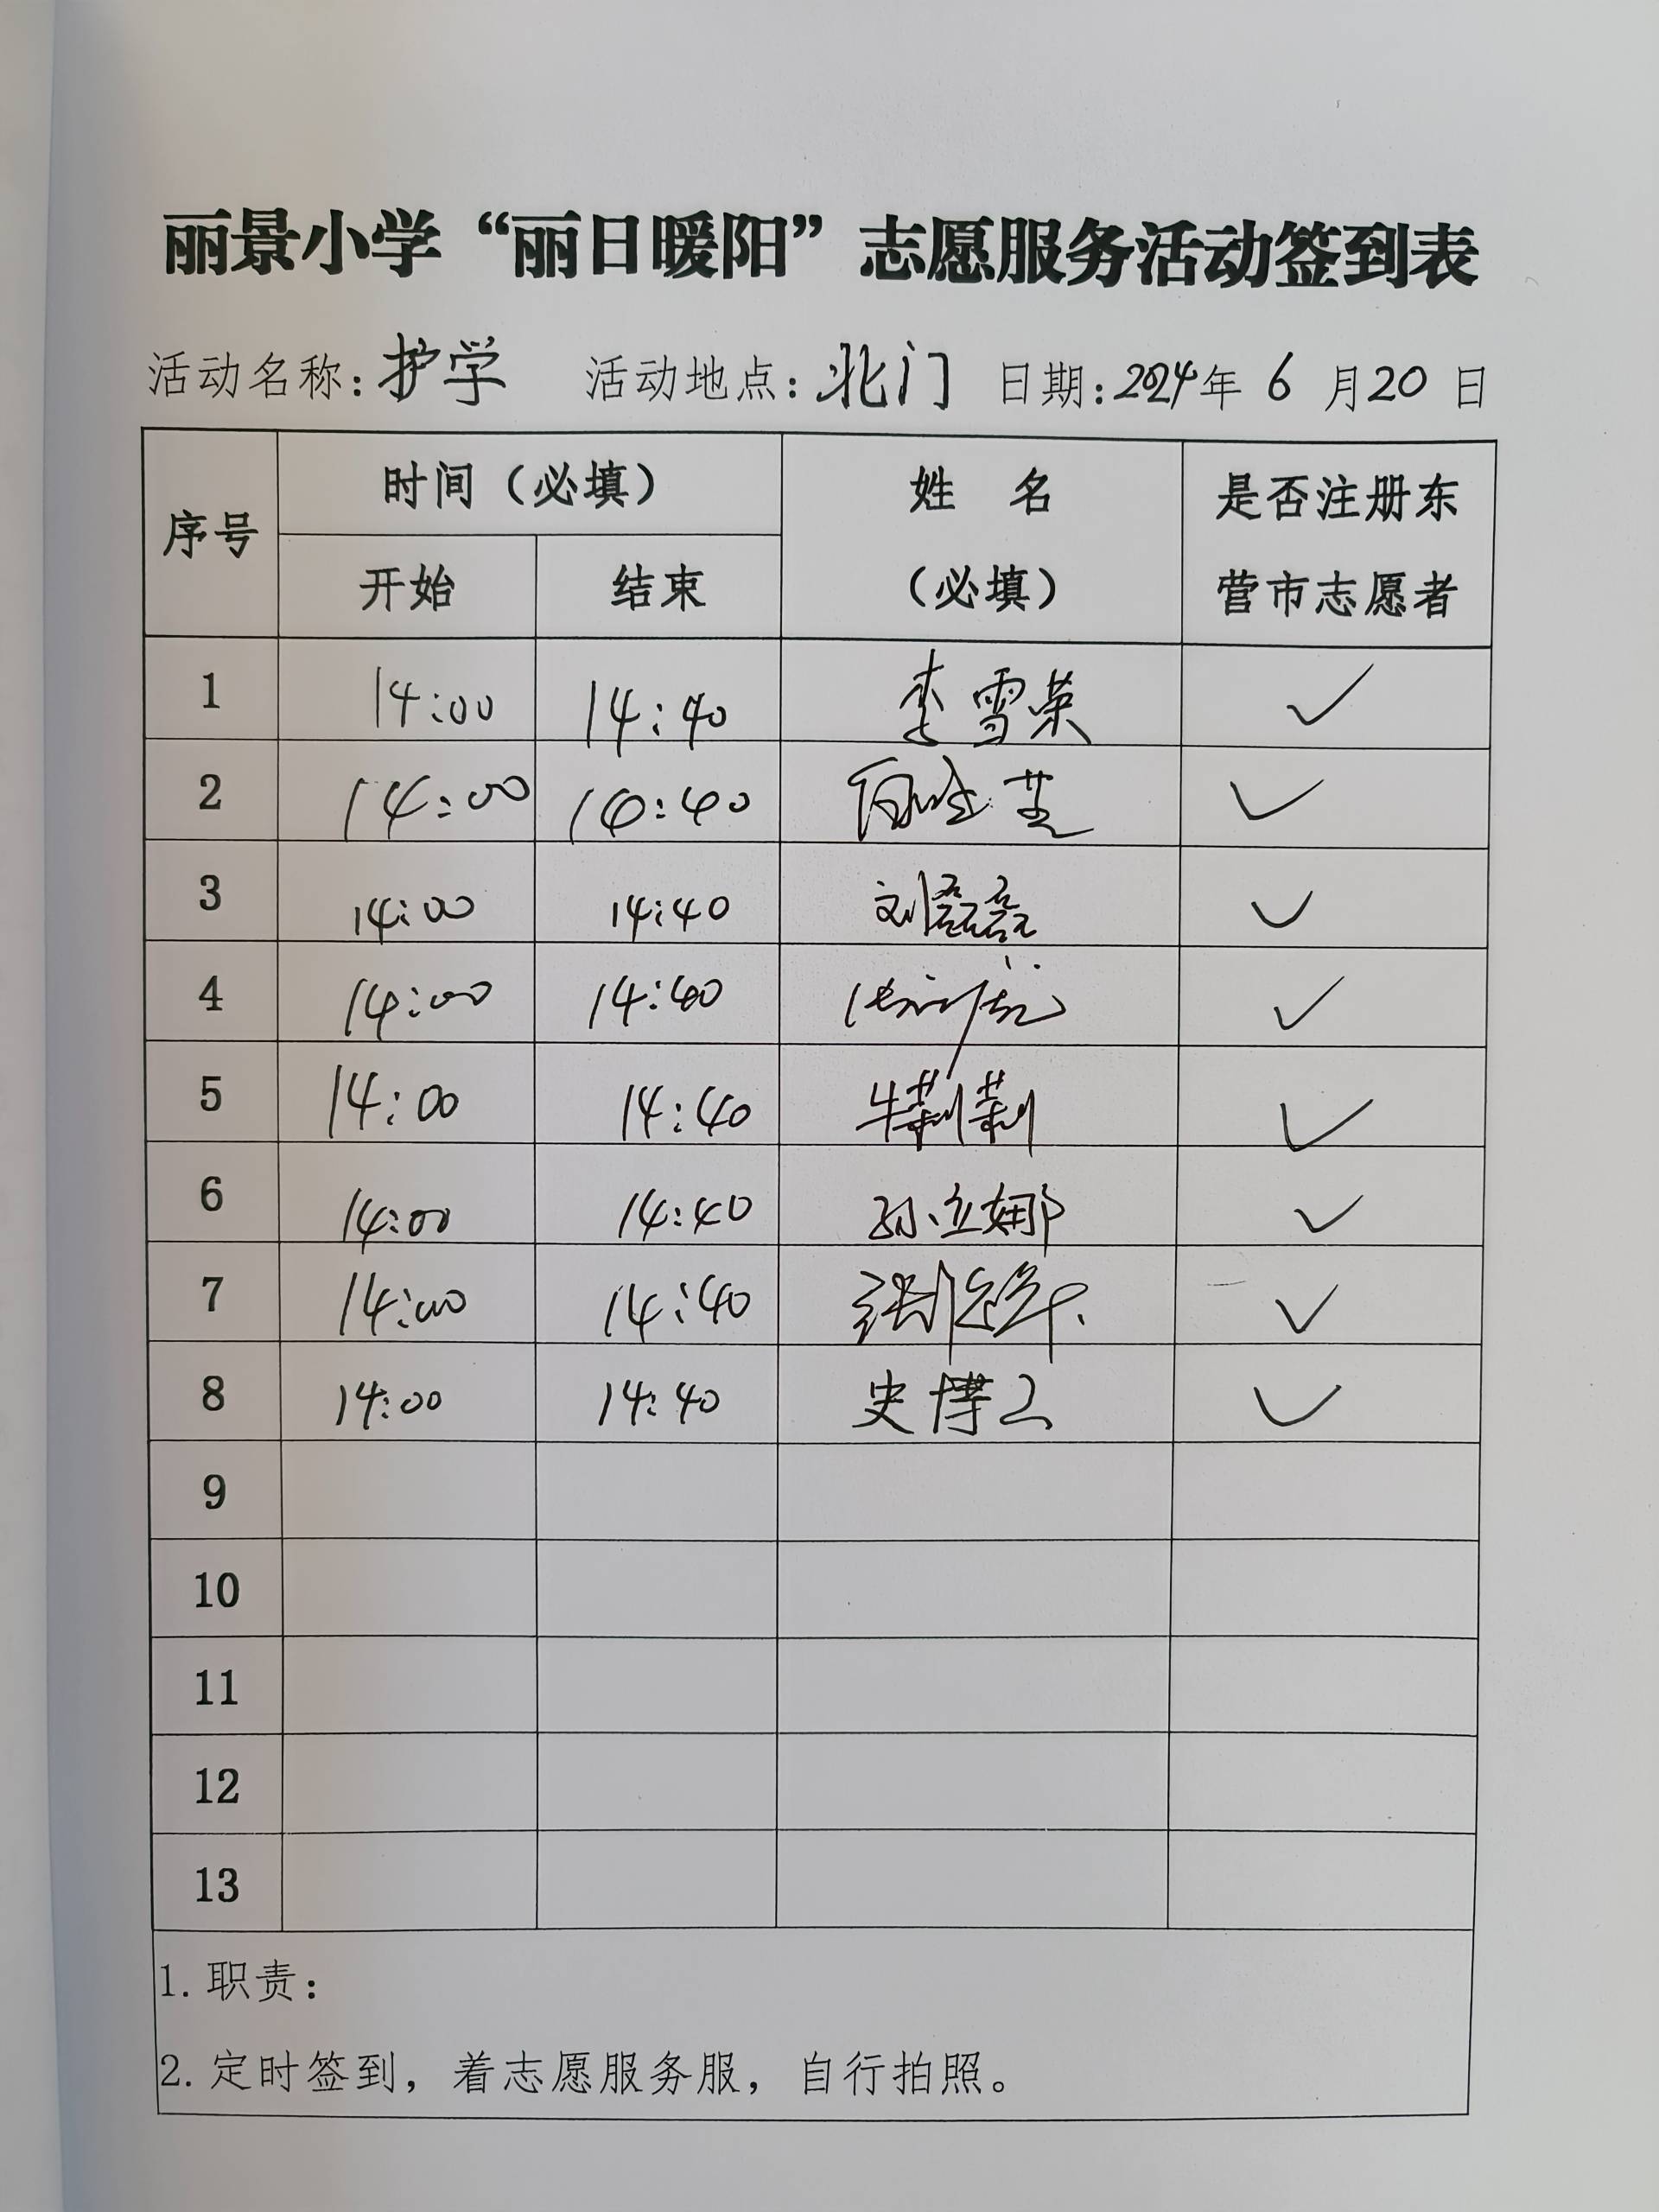 丽景小学“丽日暖阳”志愿服务活动签到表
活动名称：护学 活动地点：北门 日期：2024年 6 月20 日
序号 时间（必填） 姓 名（必填） 是否注册东营市志愿者
开始 结束
1 14:00 14:40 李雪荣 ✓
2 14:00 14:40 ✓
3 14:00 14:40 刘磊磊 ✓
4 14:00 14:40 ✓
5 14:00 14:40 牛莉莉 ✓
6 14:00 14:40 孙立娜 ✓
7 14:00 14:40 ✓
8 14:00 14:40 史博文 ✓
9
10
11
12
13
1. 职责：
2. 定时签到，着志愿服务服，自行拍照。